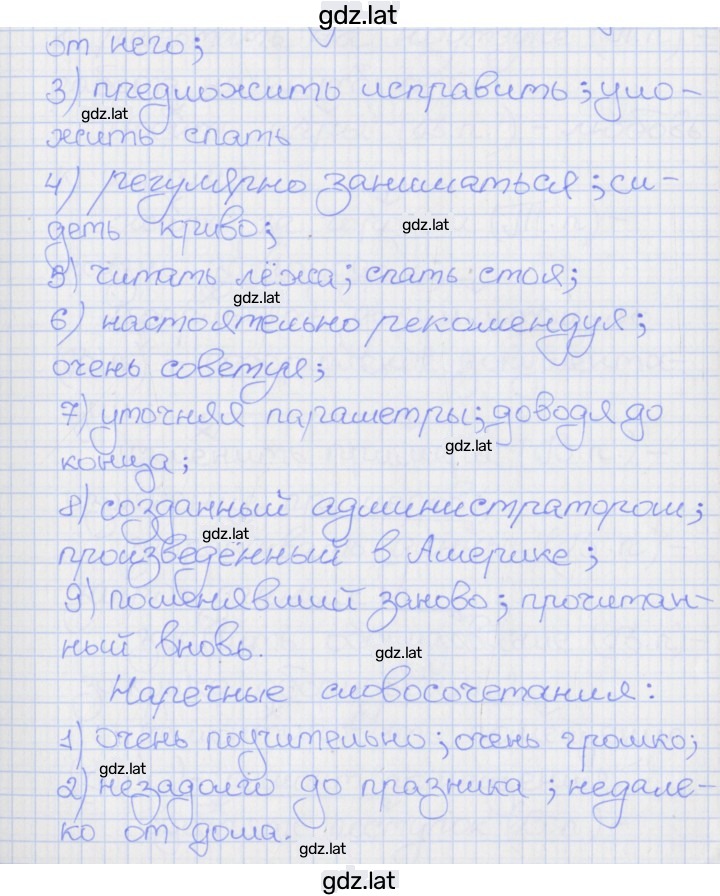 gdz.lat
от него;
3) предложить исправить; уло-
gdz.lat
жить спать
4) регулярно заниматься; си-
gdz.lat
деть криво;
5) читать лёжа; спать стоя;
gdz.lat
6) настоятельно рекомендуя;
очень советуя;
7) уточняя параметры; доводя до
gdz.lat
конца;
8) созданный администратором;
gdz.lat
произведённый в Америке;
9) поменявший заново; прочитан-
ный вновь.
gdz.lat
Наречные словосочетания:
1) очень поучительно; очень громко;
gdz.lat
2) незадолго до празника; недале-
ко от дома.
gdz.lat
gdz.lat